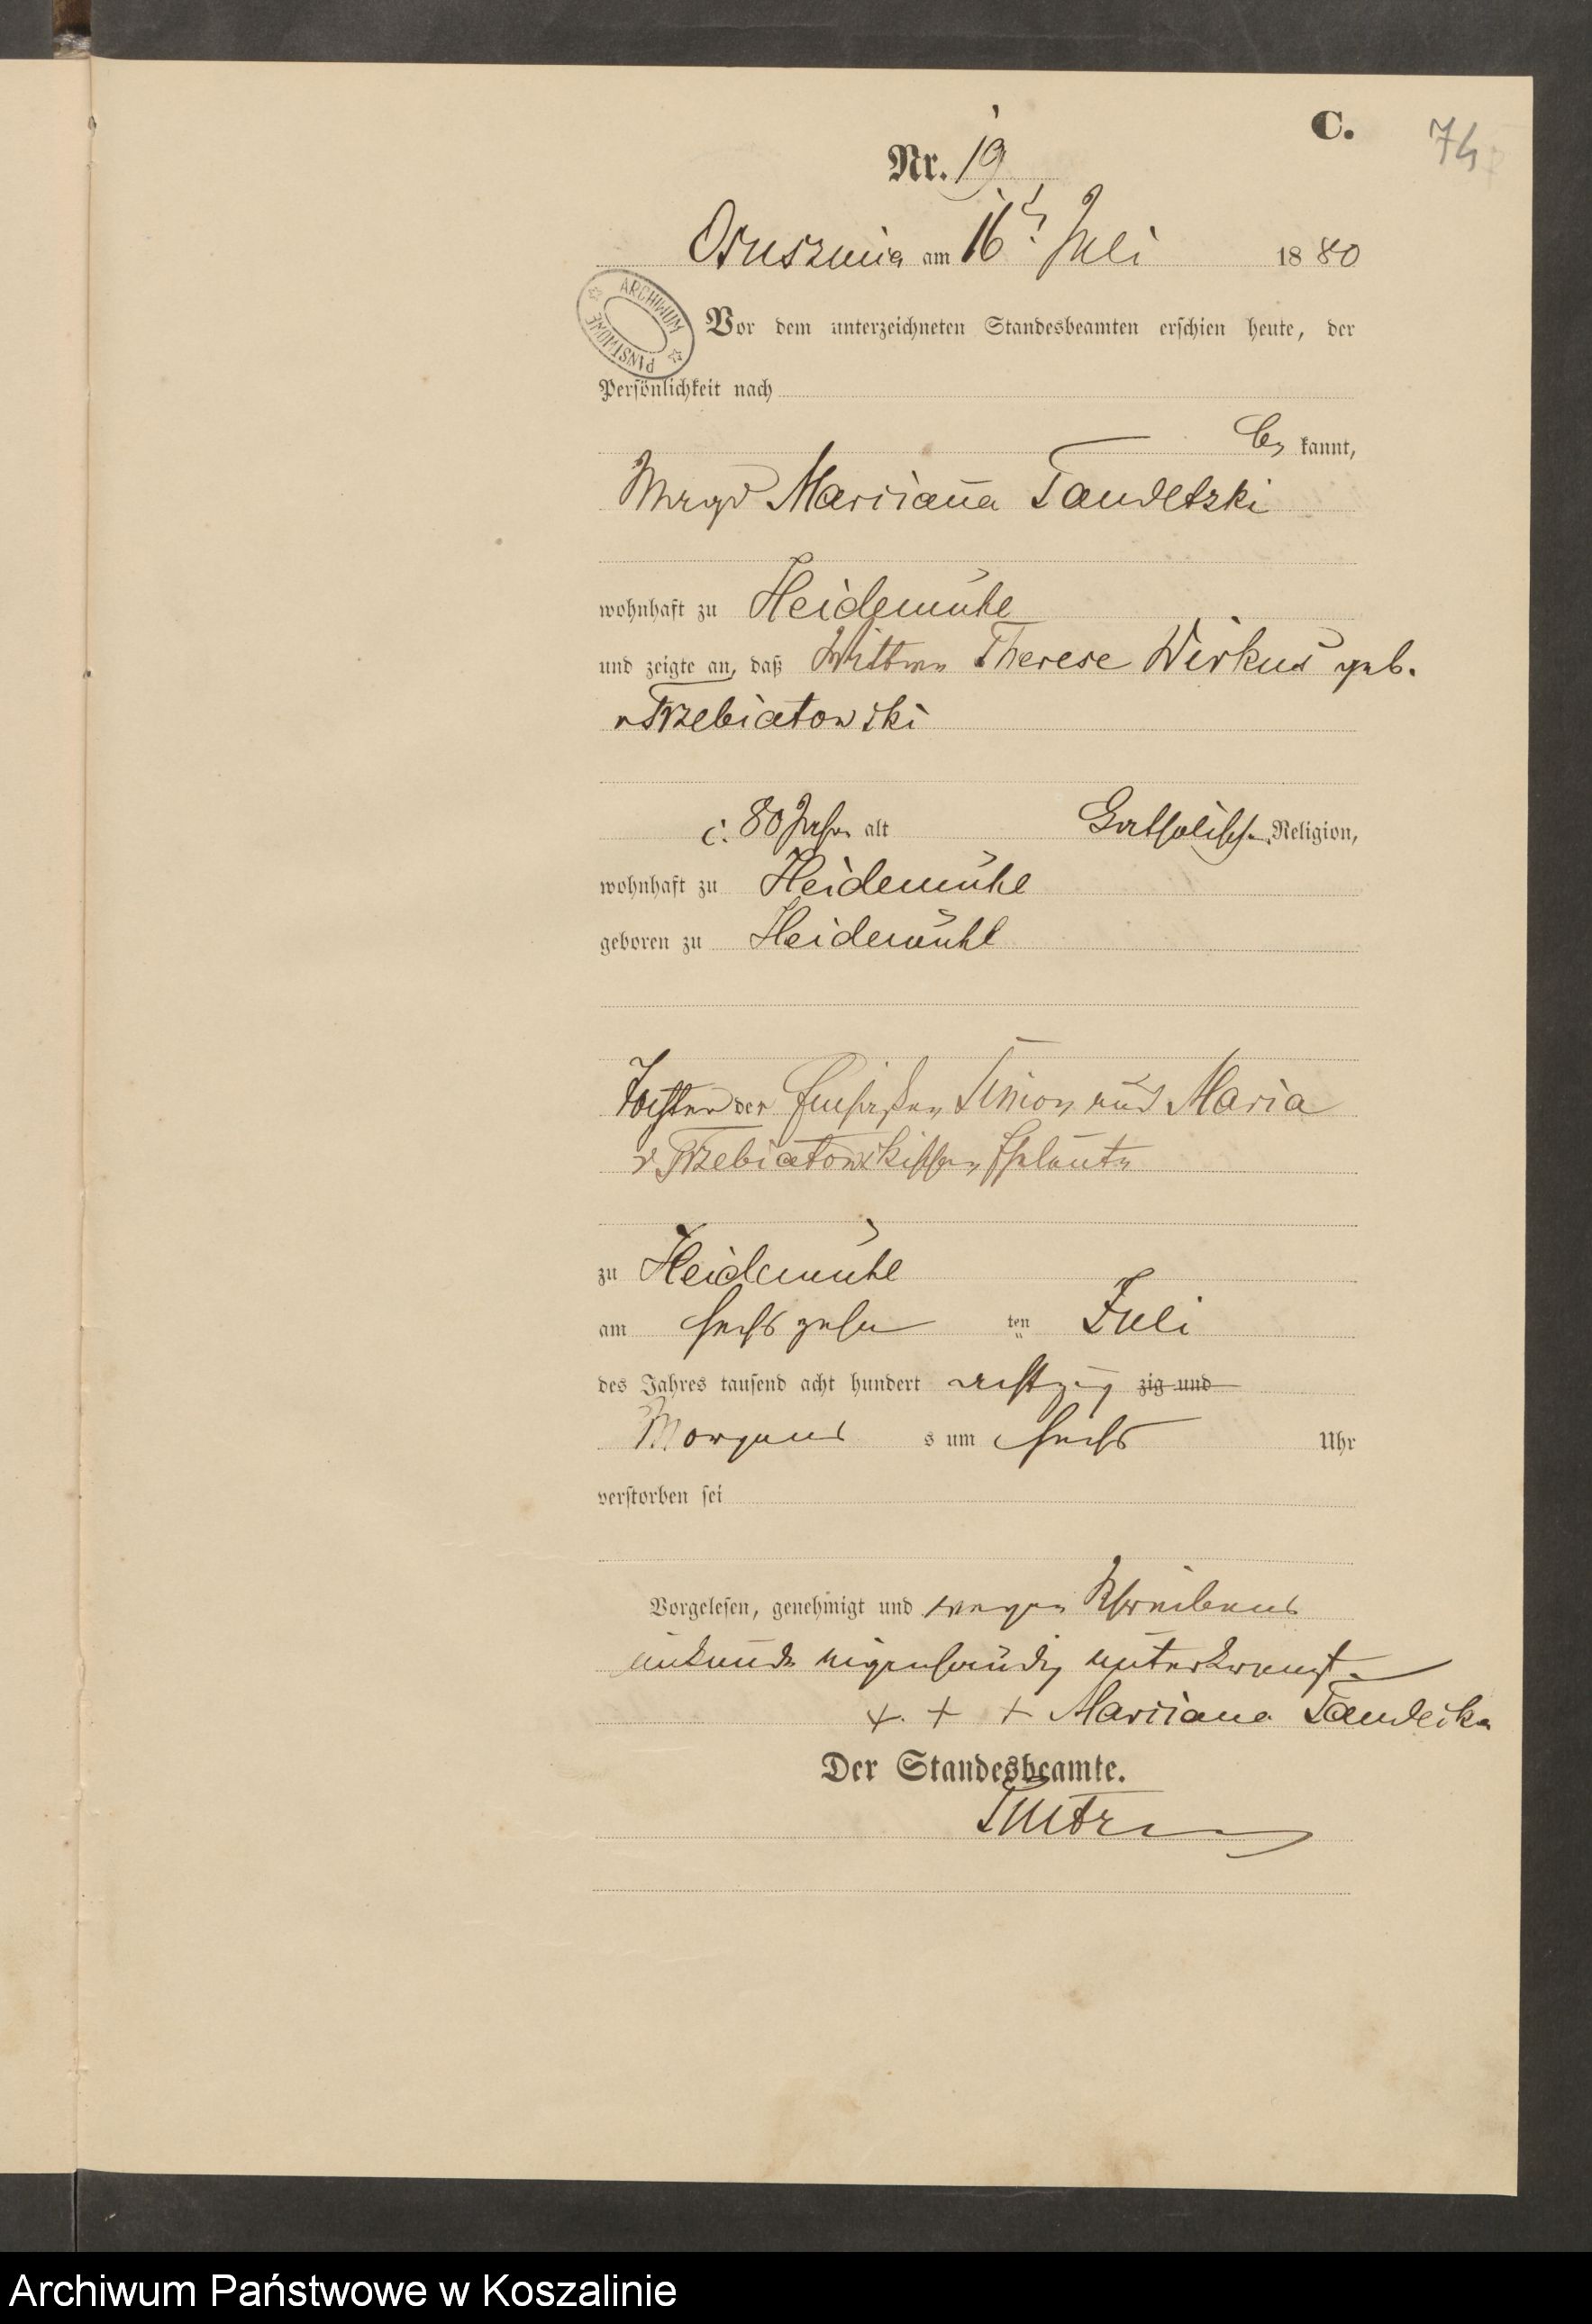 C.
74
Nr. 19
Osuszniça am 16t. Juli 1880
ARCHIWUM PAŃSTWOWE
Vor dem unterzeichneten Standesbeamten erschien heute, der
Persönlichkeit nach
be kannt,
Magd Mariiaña Tandetzki
wohnhaft zu Heidemühl
und zeigte an, daß Wittwe Therese Wirkus geb.
v Trzebiatowski
c. 80 Jahre alt Catholischer Religion,
wohnhaft zu Heidemühl
geboren zu Heidemühl
Tochter der Einsaßen Simon und Maria
v Trzebiatowskischen Eheleute
zu Heidemühl
am sechszehn ten Juli
des Jahres tausend acht hundert achtzig zig und
Morgens s um sechs Uhr
verstorben sei
Vorgelesen, genehmigt und wegen Schreibens
unkunde eigenhändig unterkreuzt.
+ + + Mariiana Tandeika
Der Standesbeamte.
Archiwum Państwowe w Koszalinie